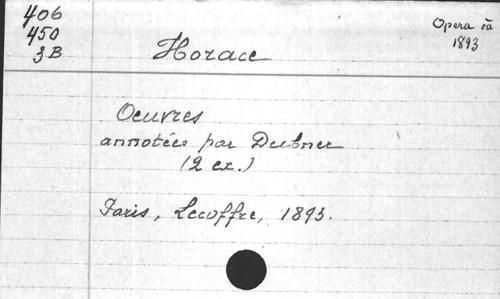 406
450
3B
Horace
Opera
1893
Oeuvres
annotées par Dubner
(2 ex.)
Paris, Lecoffre, 1893.